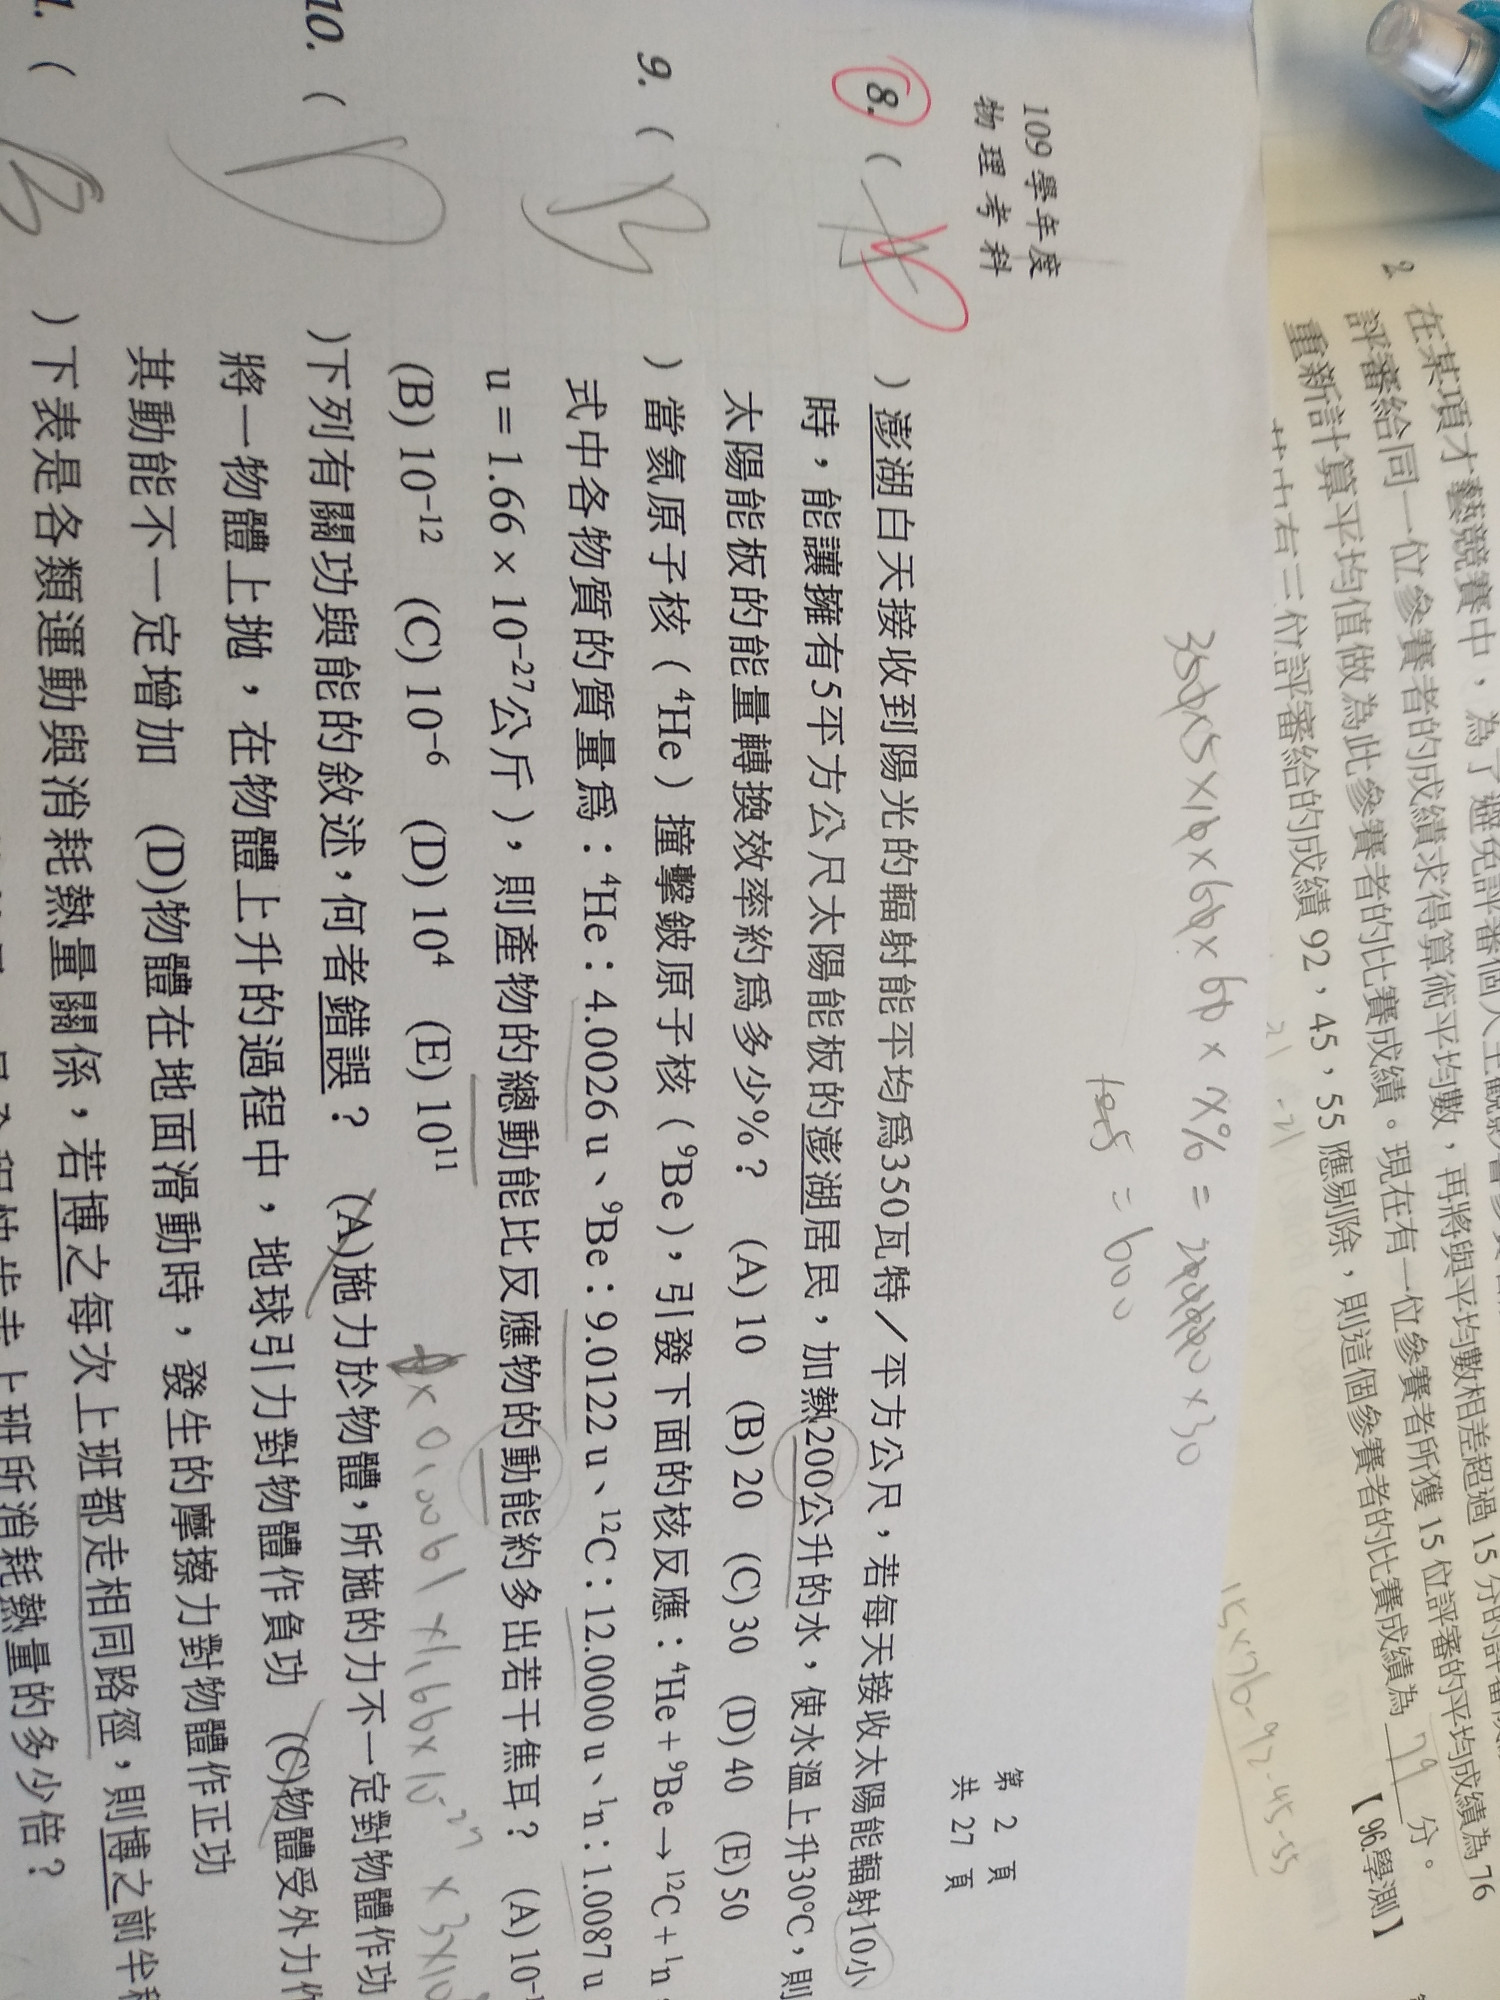 在某項才藝競賽中,為了避免評審個人主觀影響參賽者
評審給同一位參賽者的成績求得算術平均數,再將與平均數相差超過15分的評審成績
重新計算平均值做為此參賽者的比賽成績。現在有一位參賽者所獲15位評審的平均成績為76
其中有三位評審給的成績92,45,55應剔除,則這個參賽者的比賽成績為 79 分。
【96學測】
15×76-92-45-55
109學年度
物理考科
第 2 頁
共 27 頁
350×5×10×60×60×x%=200000×30
105=600
8. (
)澎湖白天接收到陽光的輻射能平均為350瓦特/平方公尺,若每天接收太陽能輻射10小
時,能讓擁有5平方公尺太陽能板的澎湖居民,加熱200公升的水,使水溫上升30℃,則
太陽能板的能量轉換效率約為多少%? (A) 10 (B) 20 (C) 30 (D) 40 (E) 50
9. ( B )當氦原子核(⁴He)撞擊鈹原子核(⁹Be),引發下面的核反應:⁴He+⁹Be→¹²C+¹n
式中各物質的質量為:⁴He:4.0026 u、⁹Be:9.0122 u、¹²C:12.0000 u、¹n:1.0087 u
u=1.66×10⁻²⁷公斤),則產物的總動能比反應物的動能約多出若干焦耳? (A) 10⁻
(B) 10⁻¹² (C) 10⁻⁶ (D) 10⁴ (E) 10¹¹
×0.0061×1.66×10⁻²⁷×3×10
10. ( D )下列有關功與能的敘述,何者錯誤? (A)施力於物體,所施的力不一定對物體作功
將一物體上拋,在物體上升的過程中,地球引力對物體作負功 (C)物體受外力作
其動能不一定增加 (D)物體在地面滑動時,發生的摩擦力對物體作正功
1. ( B )下表是各類運動與消耗熱量關係,若博之每次上班都走相同路徑,則博之前半程
上班所消耗熱量的多少倍?